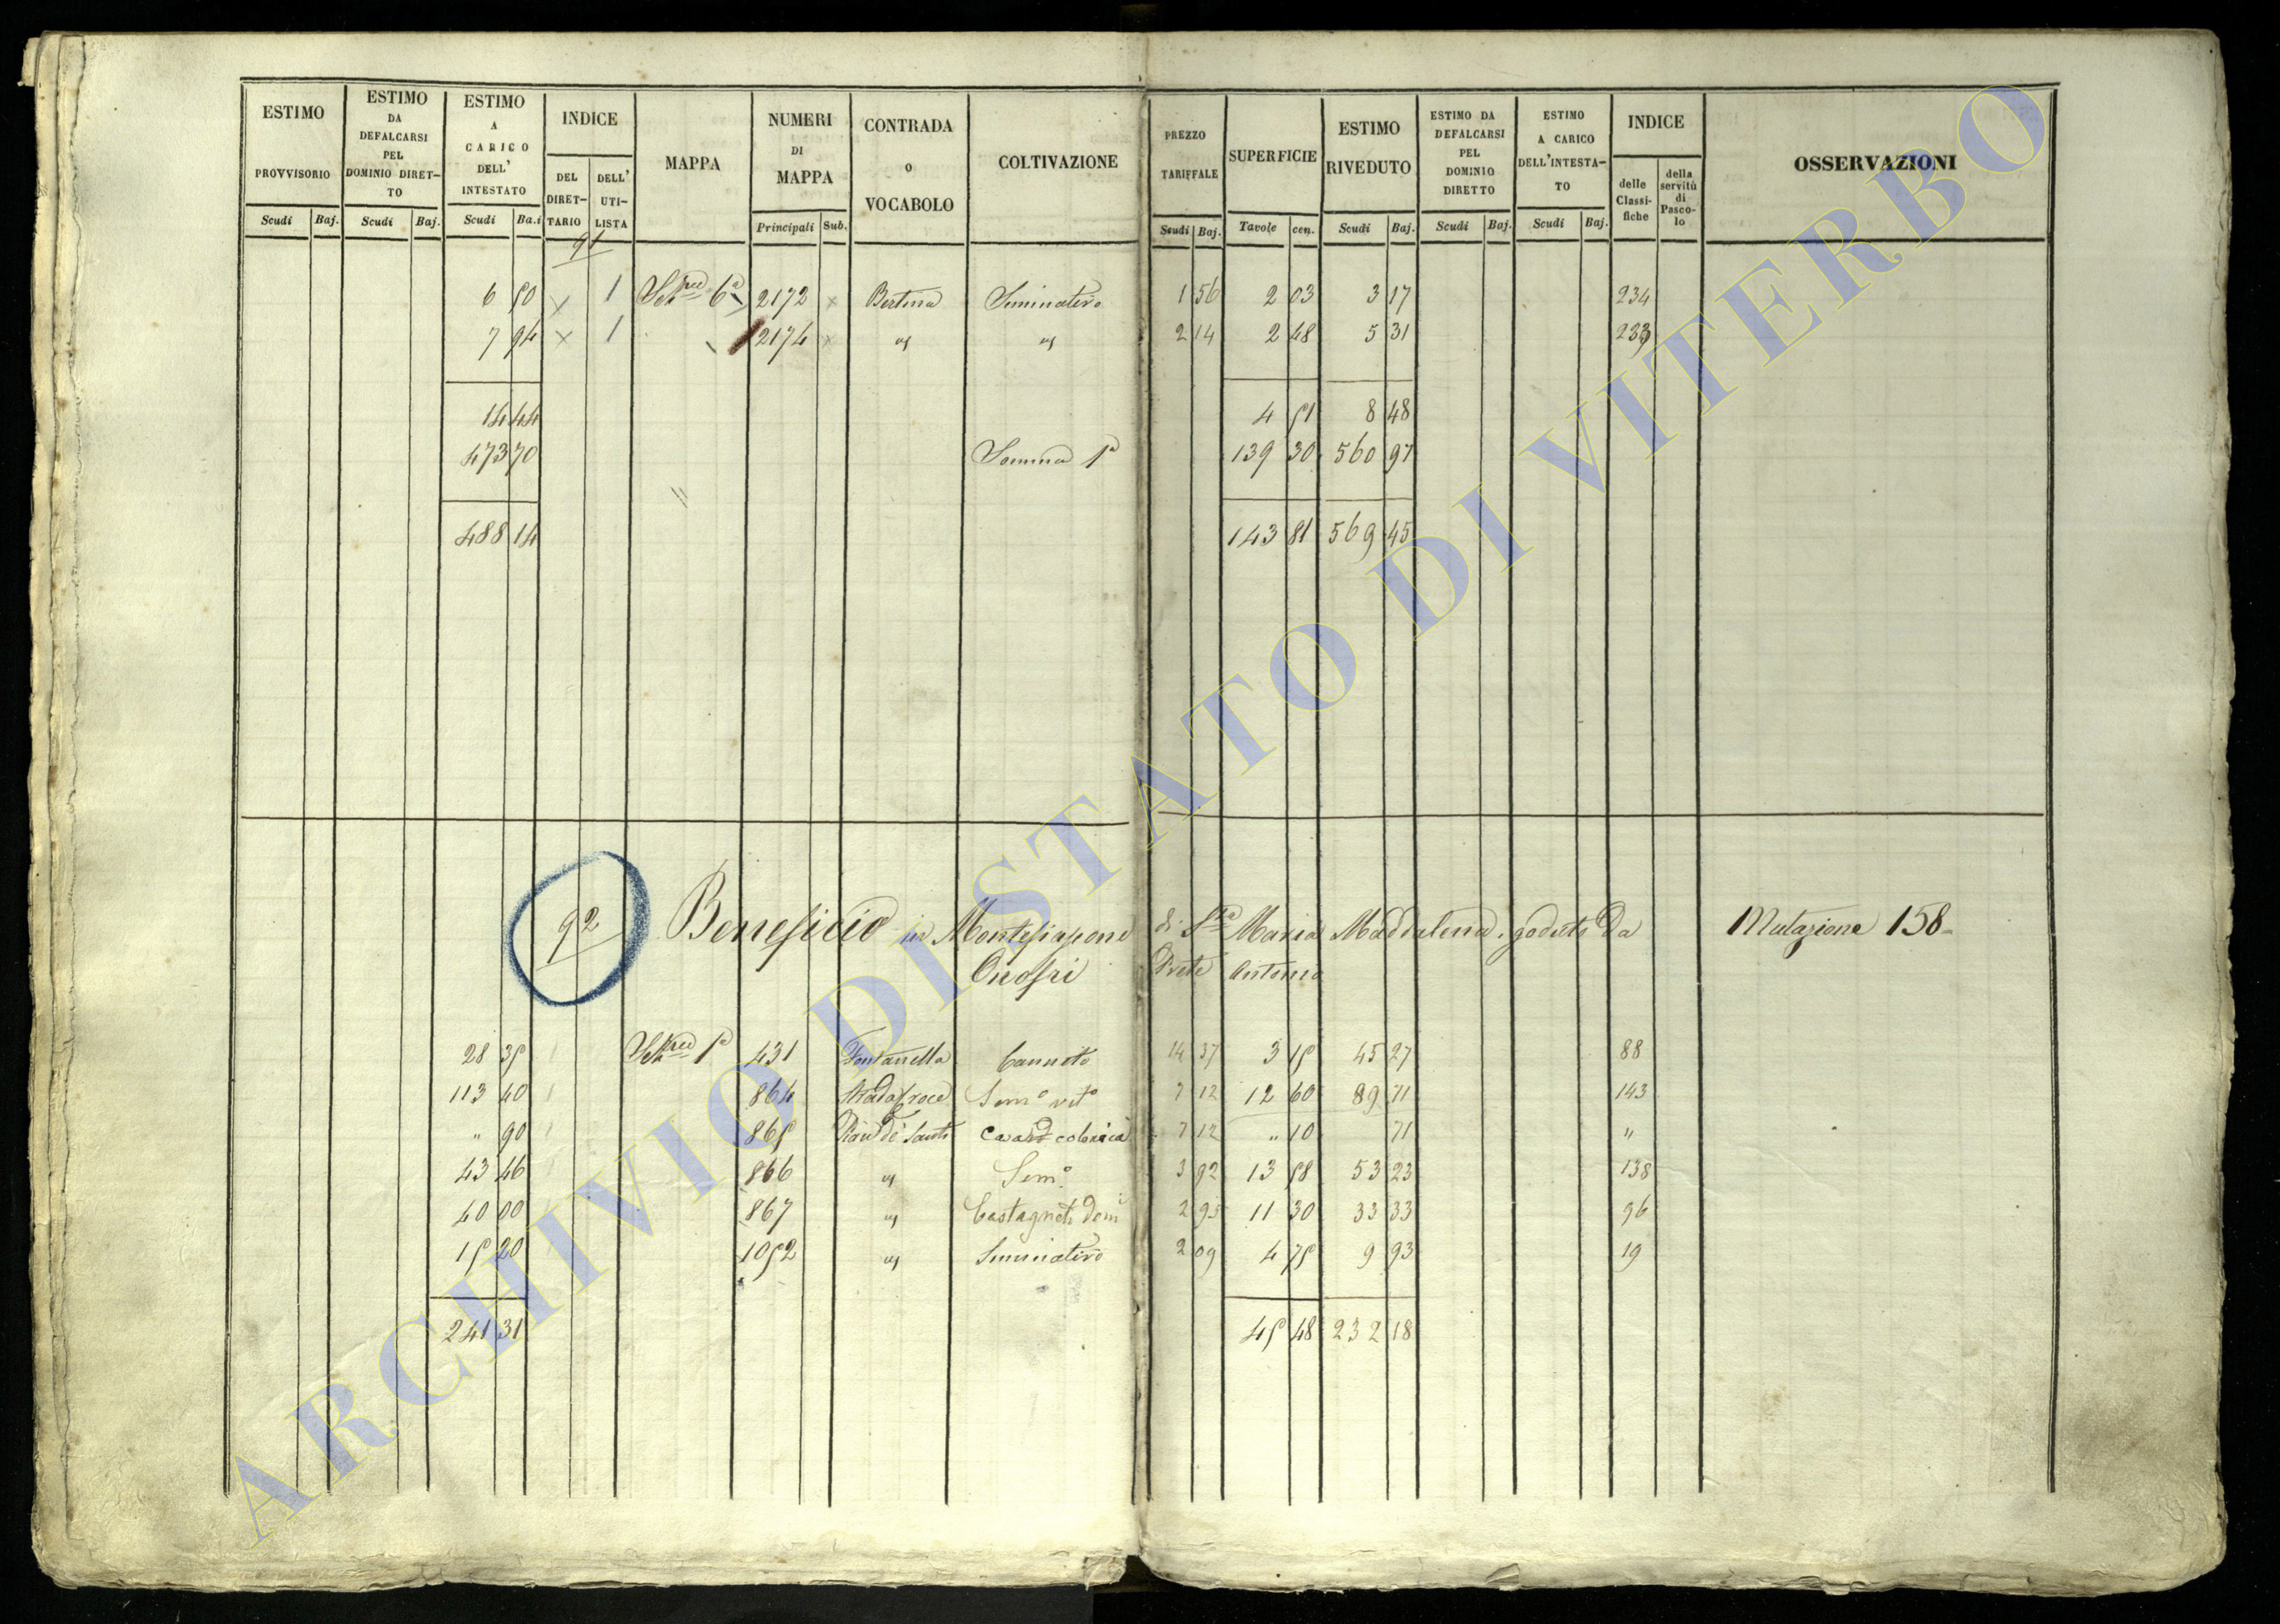 ESTIMO PROVVISORIO | ESTIMO DA DEFALCARSI PEL DOMINIO DIRETTO | ESTIMO A CARICO DELL' INTESTATO | INDICE | MAPPA | NUMERI DI MAPPA | CONTRADA o VOCABOLO | COLTIVAZIONE | PREZZO TARIFFALE | SUPERFICIE | ESTIMO RIVEDUTO | ESTIMO DA DEFALCARSI PEL DOMINIO DIRETTO | ESTIMO A CARICO DELL'INTESTATO | INDICE | OSSERVAZIONI
DEL DIRETTARIO | DELL' UTILISTA | delle Classifiche | della servitù di Pascolo
Scudi | Baj. | Scudi | Baj. | Scudi | Ba.i | Principali | Sub. | Scudi | Baj. | Tavole | cen. | Scudi | Baj. | Scudi | Baj. | Scudi | Baj.
91
6 50 x 1 6a 2172 x Seminativo 1 56 2 03 3 17 234
7 94 x 1 2174 x 2 14 2 48 5 31 233
14 44 4 51 8 48
473 70 Somma 1a 139 30 560 97
488 14 143 81 569 45
92 Beneficio in Montefiascone di Sta Maria Maddalena, goduto Da Mutazione 158
Onofri Prete Antonio
28 35 1 1a 431 Fontanella Canneto 14 37 3 15 45 27 88
113 40 1 864 Semo vito 7 12 12 60 89 71 143
" 90 1 865 Casa colonica 7 12 " 10 71 "
43 46 1 866 Semo 3 92 13 58 53 23 138
40 00 867 Castagneto dom 2 95 11 30 33 33 96
15 20 1052 Seminativo 2 09 4 75 9 93 19
241 31 45 48 232 18
ARCHIVIO DI STATO DI VITERBO